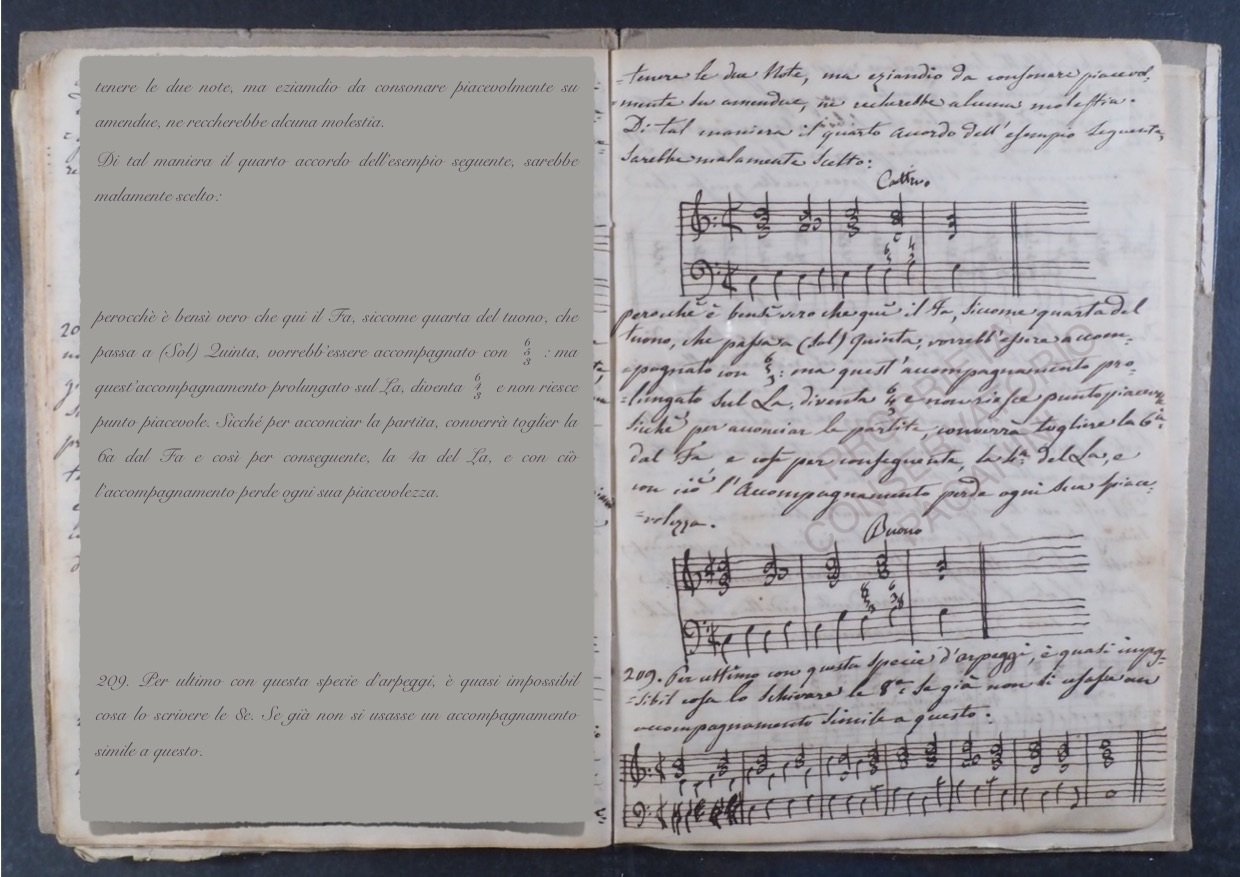 tenere le due note, ma eziamdio da consonare piacevolmente su
amendue, ne reccherebbe alcuna molestia.
Di tal maniera il quarto accordo dell'esempio seguente, sarebbe
malamente scelto:
perocchè è bensì vero che qui il Fa, siccome quarta del tuono, che
passa a (Sol) Quinta, vorrebb'essere accompagnato con 6 5 3 : ma
quest'accompagnamento prolungato sul La, diventa 6 4 3 e non riesce
punto piacevole. Sicché per acconciar la partita, converrà toglier la
6a dal Fa e così per conseguente, la 4a del La, e con ciò
l'accompagnamento perde ogni sua piacevolezza.
209. Per ultimo con questa specie d'arpeggi, è quasi impossibil
cosa lo scrivere le 8e. Se già non si usasse un accompagnamento
simile a questo.
tenere le due Note, ma eziandio da consonare piacevol-
mente su amendue, ne recherebbe alcuna molestia.
Di tal maniera il quarto accordo dell'esempio seguente,
sarebbe malamente scelto:
Cattivo
6 4
perocchè è bensì vero che quì il Fa, siccome quarta del
tuono, che passa a (Sol) quinta, vorrebb'essere accom-
=pagnato con 6 5 3 : ma quest'accompagnamento pro-
=lungato sul La, diventa 6 4 e non riesce punto piacevole
sicchè per acconciar la partita, converrà togliere la 6a
dal Fa e così per conseguente, la 4a del La, e
con ciò l'accompagnamento perde ogni sua piace-
=volezza.
Buono
209. Per ultimo con questa specie d'arpeggi, è quasi impos-
=sibil cosa lo schivare le 8e Se già non si usasse un
accompagnamento simile a questo.
PROPRIETÀ
CONSERVATORIO
PAGANINI